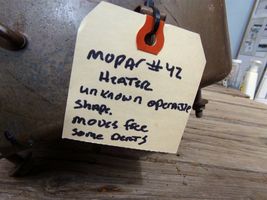 MOPAR #42
HEATER
UNKNOWN OPERATING
SHAPE.
MOVES FREE
SOME DENTS